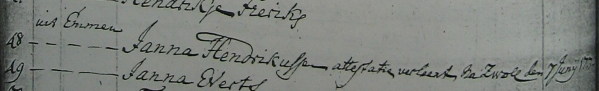 Hendrikje Freriks
uit Emmen
48 - - - - - Janna Hendrikussen attestatie verleent na Zwoll den 7 Juny
49 - - - - - Janna Everts